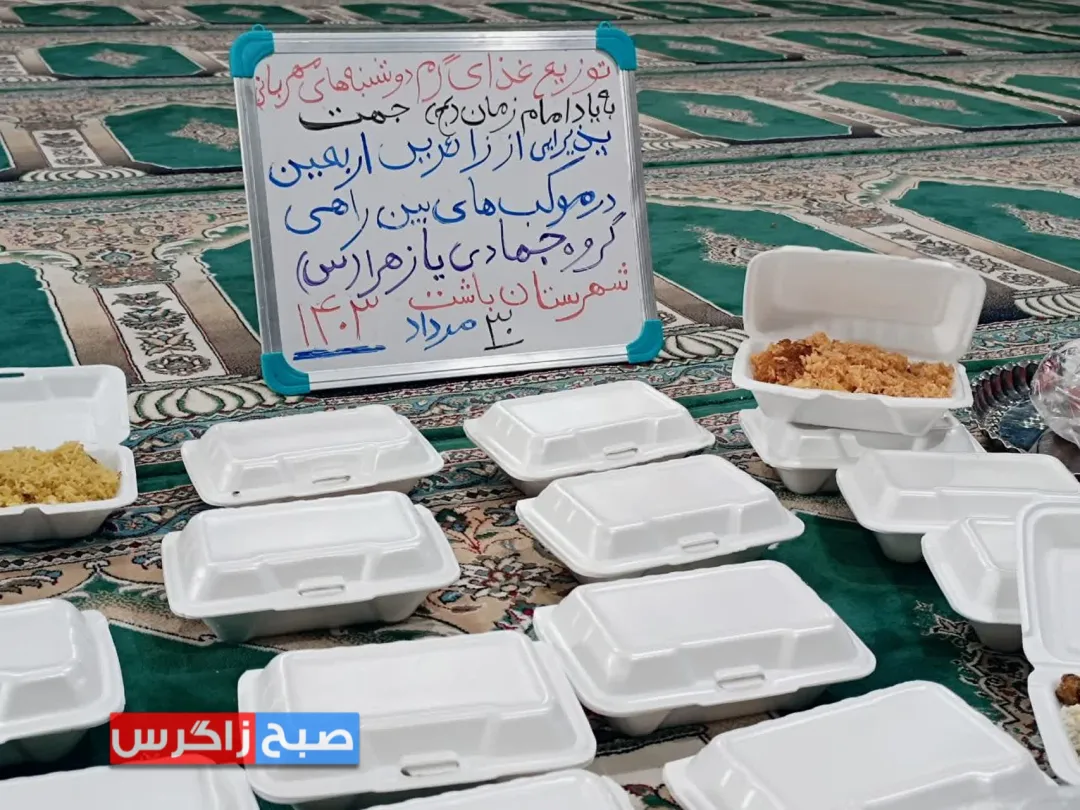 توزیع غذای گرم دوشنبه‌های مهربانی
به یاد امام زمان (عج) جهت
پذیرایی از زائرین اربعین
در موکب‌های بین راهی
گروه جهادی یازهرا (س)
شهرستان باشت ۱۴۰۳
۳۰ مرداد
صبح زاگرس